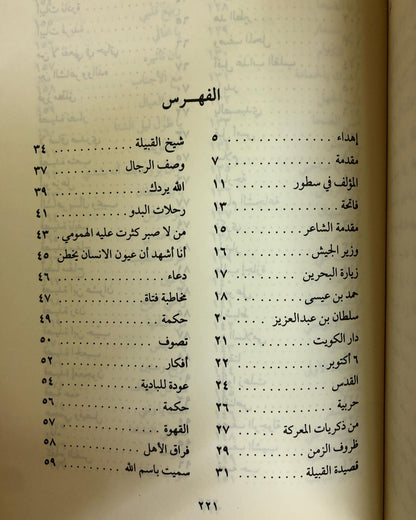 الفهـرس
إهداء . . . . . . . . . . . . ٥
مقدمة . . . . . . . . . . . . ٧
المؤلف في سطور . . . . . . ١١
فاتحة . . . . . . . . . . . . ١٣
مقدمة الشاعر . . . . . . . . ١٥
وزير الجيش . . . . . . . . . ١٦
زيارة البحرين . . . . . . . . ١٧
حمد بن عيسى . . . . . . . . ١٨
سلطان بن عبدالعزيز . . . . ٢٠
دار الكويت . . . . . . . . . ٢١
٦ أكتوبر . . . . . . . . . . ٢٢
القدس . . . . . . . . . . . . ٢٤
حربية . . . . . . . . . . . . ٢٦
من ذكريات المعركة . . . . . ٢٧
ظروف الزمن . . . . . . . . ٢٩
قصيدة القبيلة . . . . . . . . ٣١
شيخ القبيلة . . . . . . . . . ٣٤
وصف الرجال . . . . . . . . ٣٧
الله يردك . . . . . . . . . . ٣٩
رحلات البدو . . . . . . . . ٤١
من لا صبر كثرت عليه الهمومي . ٤٣
أنا أشهد أن عيون الانسان يخطن ٤٥
دعاء . . . . . . . . . . . . ٤٦
مخاطبة فتاة . . . . . . . . . ٤٧
حكمة . . . . . . . . . . . . ٤٩
تصوف . . . . . . . . . . . . ٥٠
أفكار . . . . . . . . . . . . ٥٢
عودة للبادية . . . . . . . . . ٥٤
حكمة . . . . . . . . . . . . ٥٦
القهوة . . . . . . . . . . . . ٥٧
فراق الأهل . . . . . . . . . ٥٨
سميت باسم الله . . . . . . . ٥٩
٢٢١